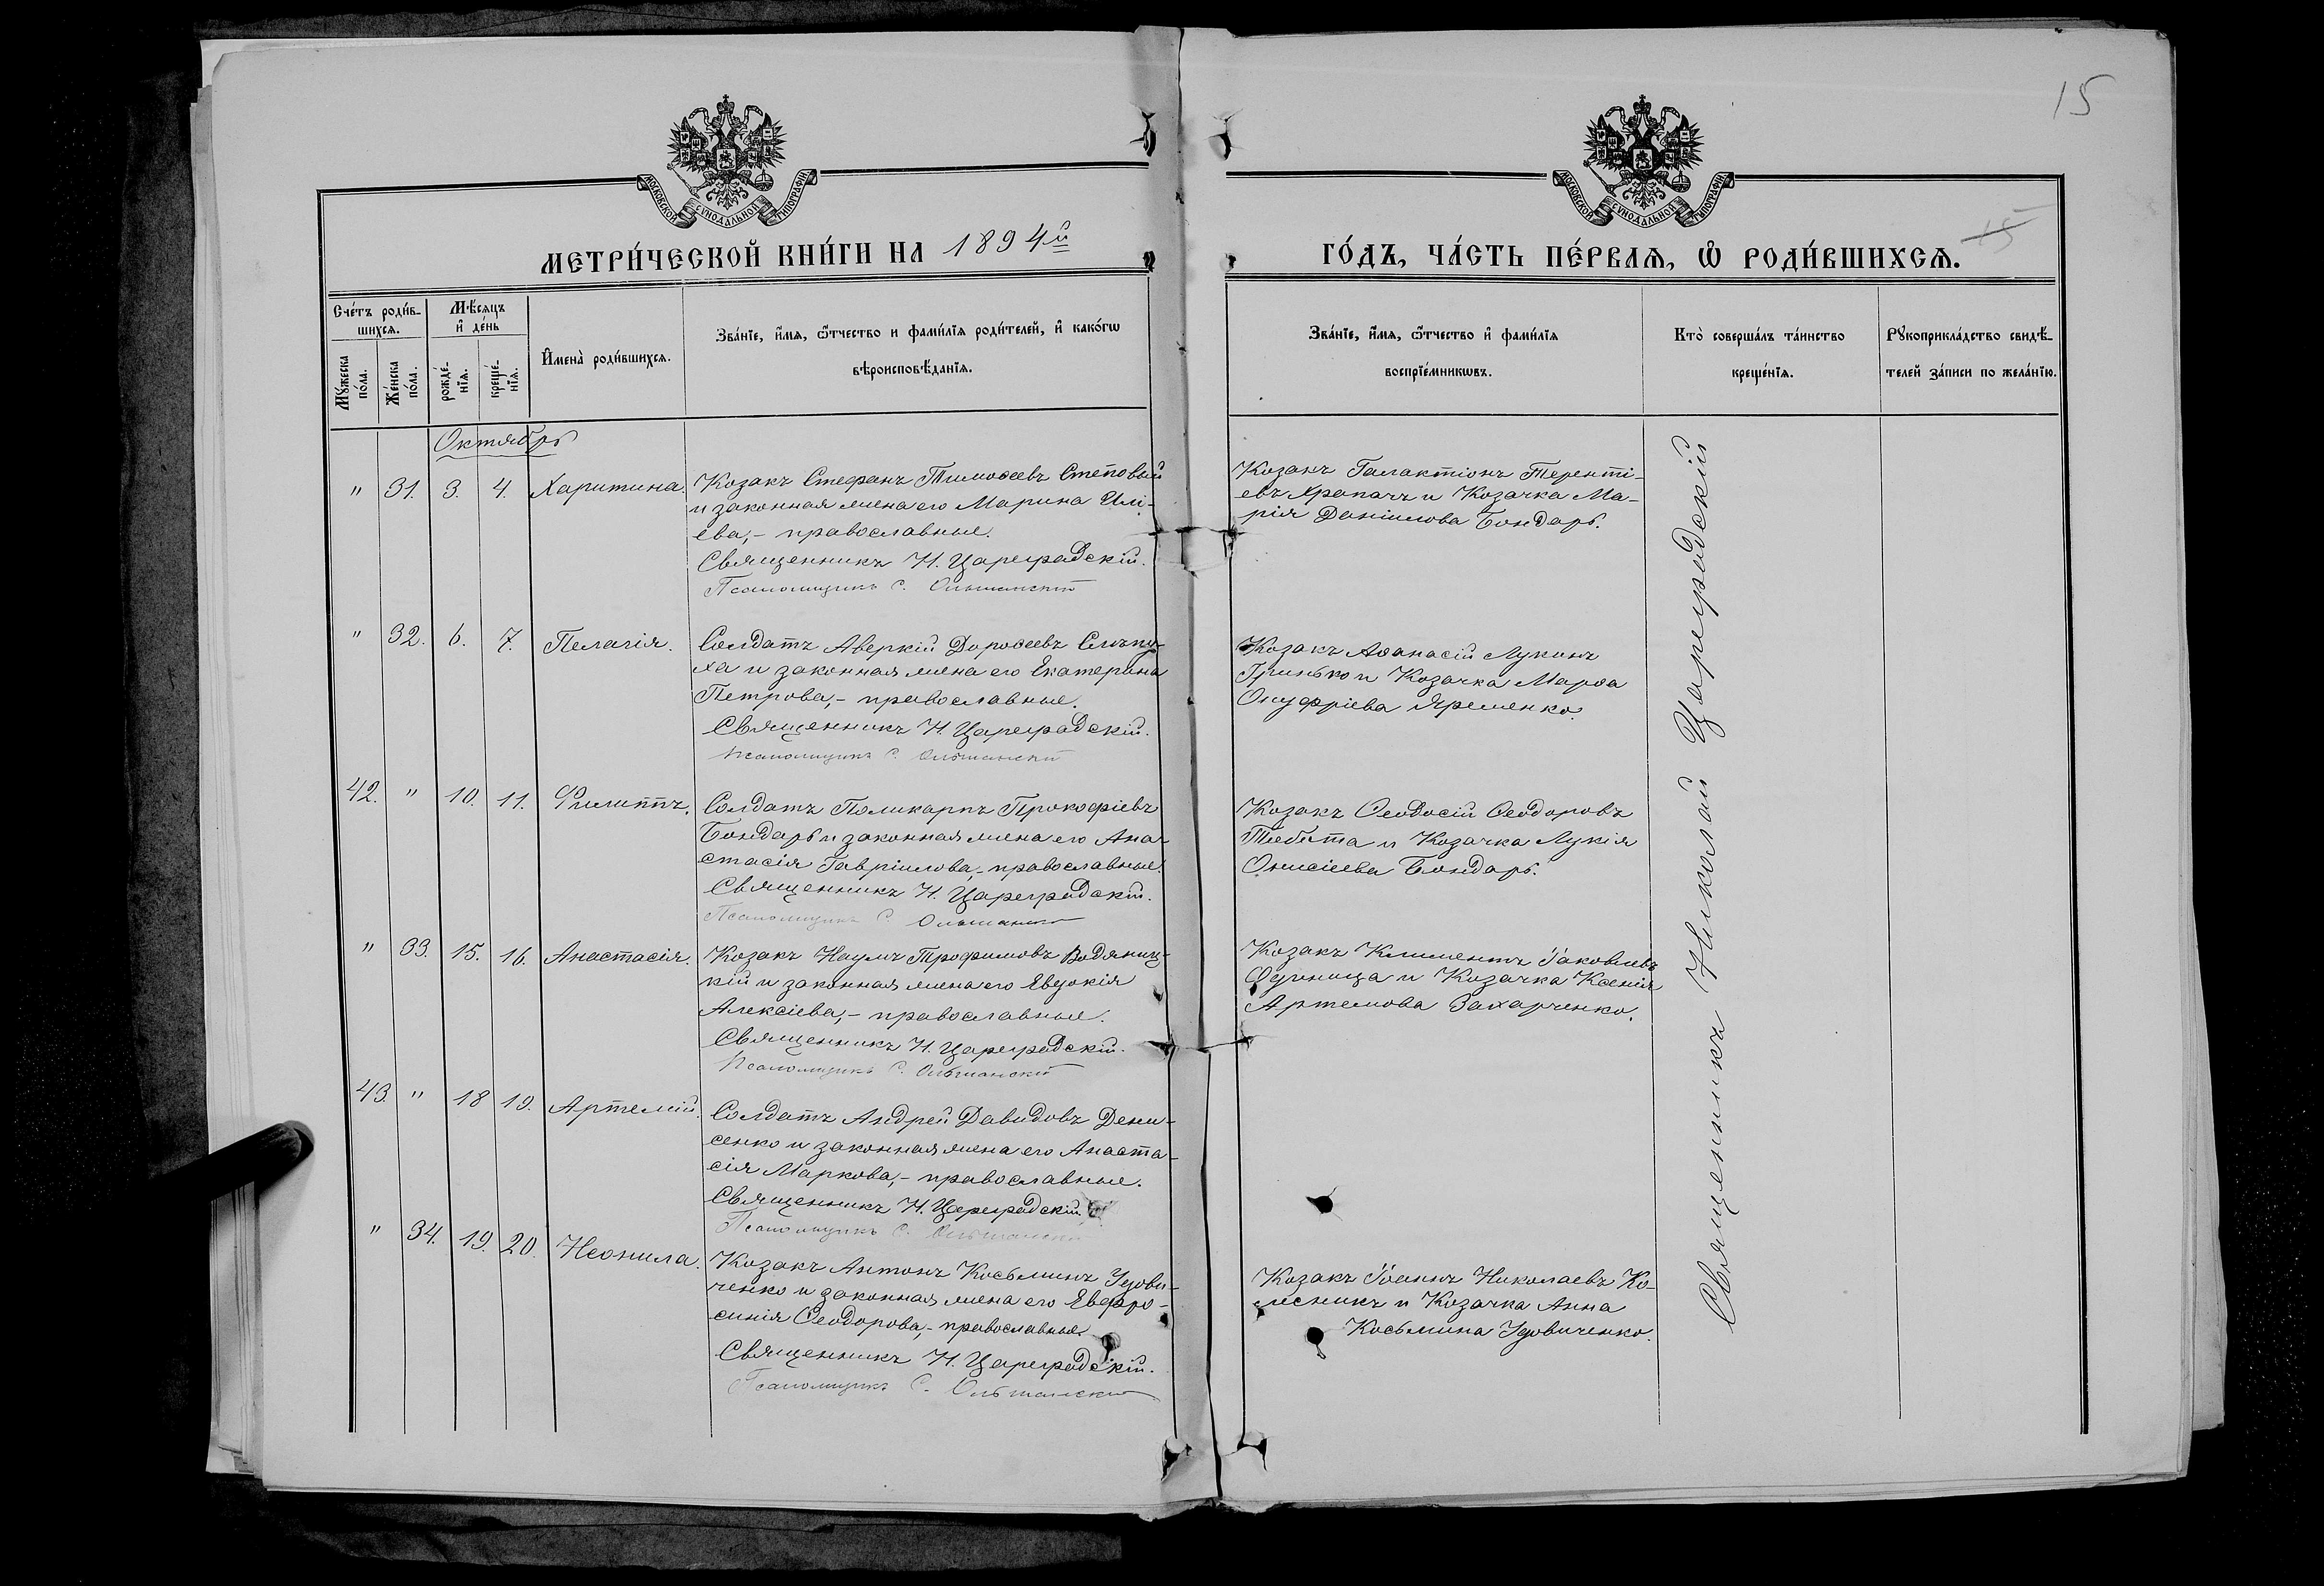 15
МОСКОВСКОЙ СѴНОДАЛЬНОЙ ТИПОГРАФІИ
МОСКОВСКОЙ СѴНОДАЛЬНОЙ ТИПОГРАФІИ
МЕТРИ́ЧЕСКОЙ КНИ́ГИ НА 1894й
ГО́ДЪ, ЧА́СТЬ ПЕ́РВАѦ, Ѡ҆ РОДИ́ВШИХСѦ.
15
Сче́тъ роди́в-
шихсѧ.
Мѣ́сѧцъ
и҆ де́нь
Мꙋ́жеска
по́ла.
Же́нска
по́ла.
рожде́-
нїѧ.
креще́-
нїѧ.
И҆мена̀ роди́вшихсѧ.
Зва́нїе, и҆́мѧ, ѻ҆́тчество и фами́лїѧ роди́телей, и҆ како́гѡ
вѣроисповѣ́данїѧ.
Зва́нїе, и҆́мѧ, ѻ҆́тчество и҆ фами́лїѧ
воспрїе́мникѡвъ.
Кто̀ соверша́лъ та́инство
креще́нїѧ.
Рꙋкоприкла́дство свидѣ́-
телей за́писи по жела́нїю.
Октябрь
" 31. 3. 4. Харитина.
Козакъ Стефанъ Тимоѳеевъ Степовый
и законная жена его Марина Илі-
ева,- православные.
Священникъ Н. Цареградскій.
Псаломщикъ С. Ольшанскій
Козакъ Галактіонъ Теренті-
евъ Храпачъ и Козачка Ма-
рія Даніилова Бондарь.
" 32. 6. 7. Пелагія.
Солдатъ Аверкій Дороѳеевъ Слѣпу-
ха и законная жена его Екатерина
Петрова,- православные.
Священникъ Н. Цареградскій.
Псаломщикъ С. Ольшанскій
Козакъ Аѳанасій Лукинъ
Гринько и Козачка Марѳа
Онуфріева Яременко.
42. " 10. 11. Филиппъ.
Солдатъ Поликарпъ Прокофіевъ
Бондарь и законная жена его Ана-
стасія Гавріилова,- православные.
Священникъ Н. Цареградскій.
Псаломщикъ С. Ольшанскій
Козакъ Ѳеодосій Ѳеодоровъ
и Козачка Лукія
Онисіева Бондарь.
" 33. 15. 16. Анастасія.
Козакъ Наумъ Трофимовъ Водяниц-
кій и законная жена его Евдокія
Алексіева,- православные.
Священникъ Н. Цареградскій.
Псаломщикъ С. Ольшанскій
Козакъ Климентъ Іаковлевъ
и Козачка Ксенія
Артемова Захарченко.
43. " 18 19. Артемій.
Солдатъ Андрей Давидовъ Дени-
сенко и законная жена его Анаста-
сія Маркова,- православные.
Священникъ Н. Цареградскій
Псаломщикъ С. Ольшанскій
" 34. 19. 20. Неонила.
Козакъ Антонъ Косьминъ Удови-
ченко и законная жена его Евфро-
синія Ѳеодорова,- православные.
Священникъ Н. Цареградскій.
Псаломщикъ С. Ольшанскій
Козакъ Іоаннъ Николаевъ Ко-
лесникъ и Козачка Анна
Косьмина Удовиченко.
Священникъ Николай Цареградскій